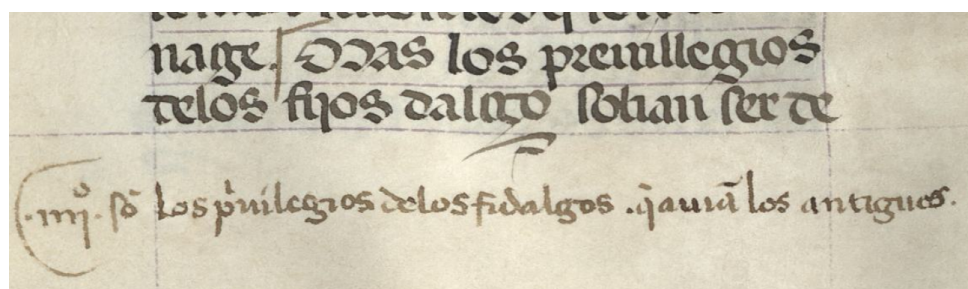 nage. Mas los preuillegios
delos fijos dalgo solian ser de
.iiijº. sō los pͥuilegios delos fidalgos .q̄ auiā los antigues.